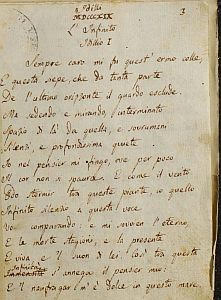 Idilli
MDCCCXIX
3
L' Infinito
Idillio I
Sempre caro mi fu quest' ermo colle,
E questa siepe che da tanta parte
De l' ultimo orizzonte il guardo esclude.
Ma sedendo e mirando, l' interminato
Spazio di là da quella, e sovrumani
Silenzi, e profondissima quiete
Io nel pensier mi fingo, ove per poco
Il cor non si spaura. E come il vento
Odo stormir tra queste piante, io quello
Infinito silenzio a questa voce
Vo comparando: e mi sovvien l' eterno,
E le morte stagioni, e la presente
E viva, e 'l suon di lei. Così tra questa
Infinità
Immensità s' annega il pensier mio:
E 'l naufragar m' è dolce in questo mare.